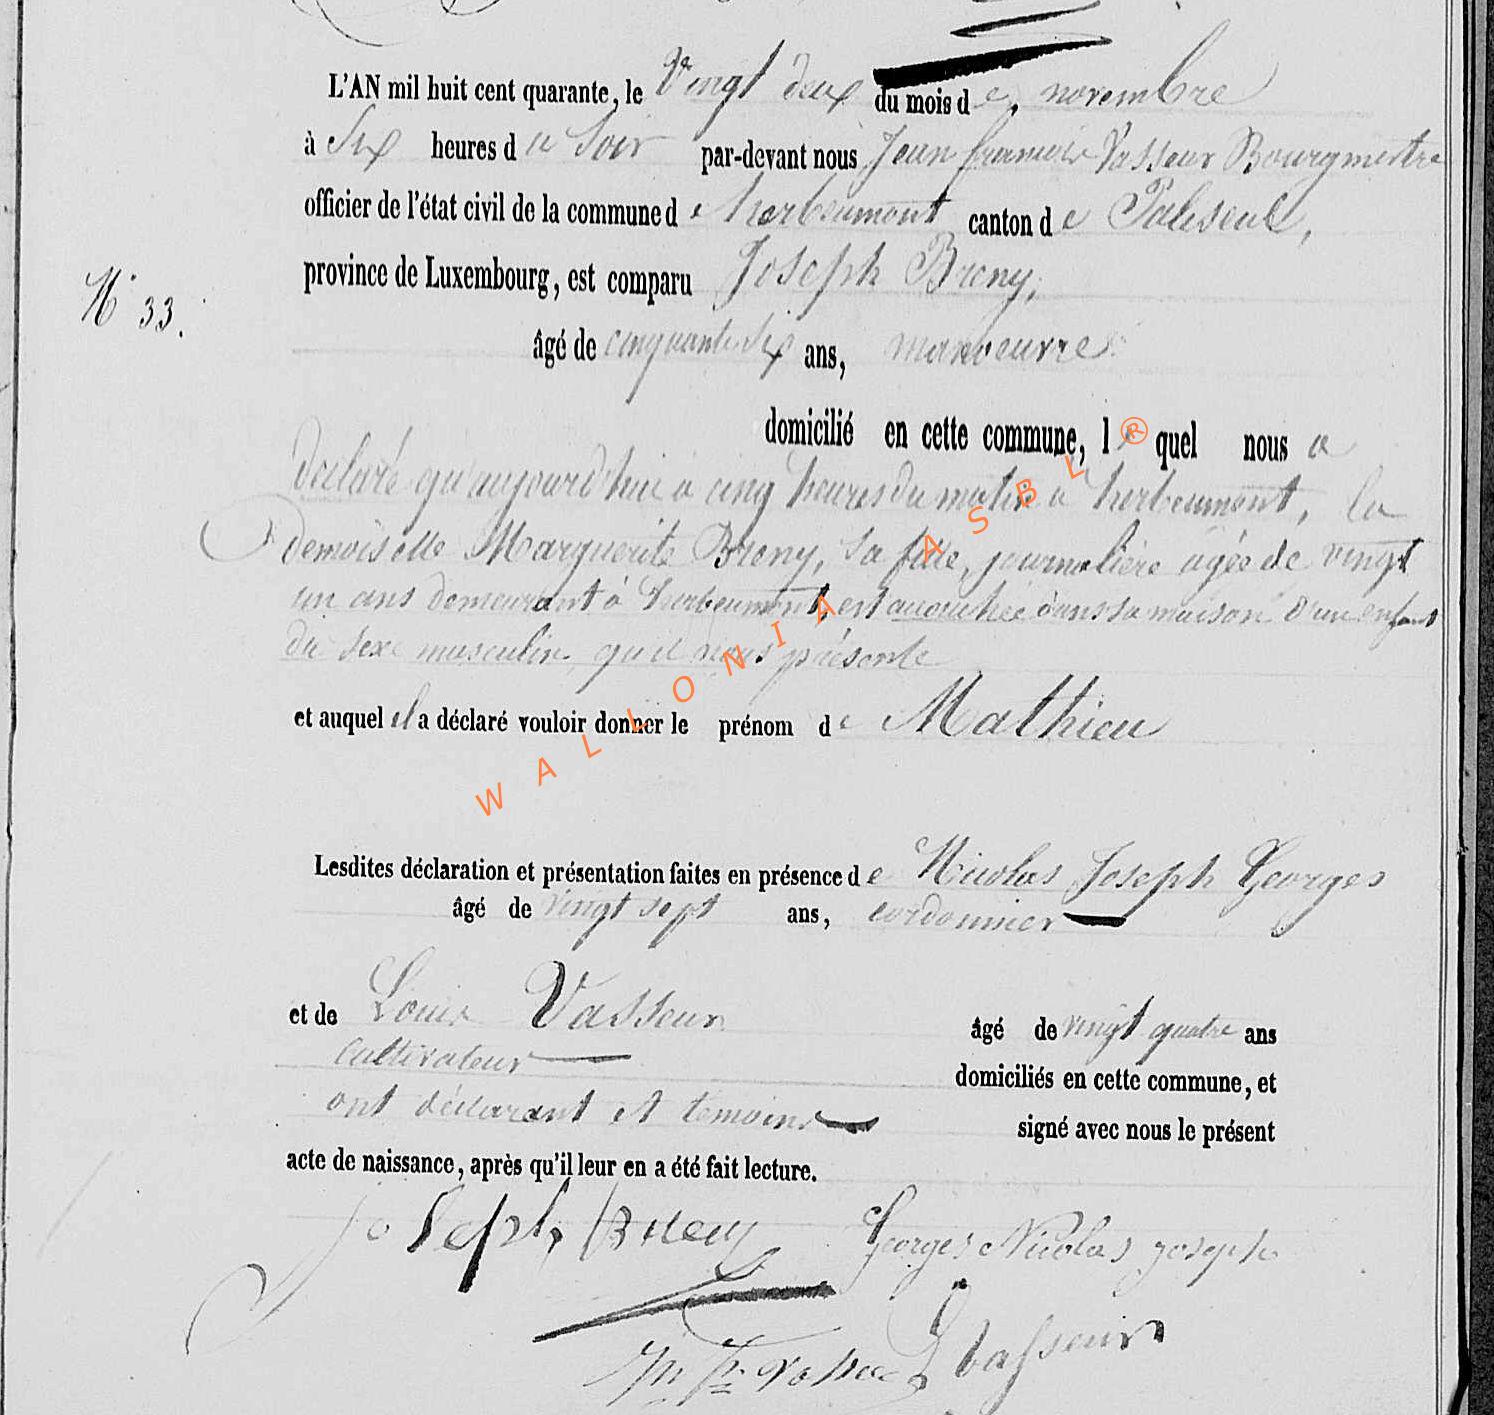 L'AN mil huit cent quarante, le Vingt deux du mois de novembre
à Six heures du Soir par-devant nous Jean francois Vasseur Bourgmestre
officier de l'état civil de la commune de herbeumont canton de Paliseul,
province de Luxembourg, est comparu Joseph Breny,
N° 33.
âgé de cinquante Six ans, manoeuvre
domicilié en cette commune, lequel nous a
declaré qu'aujourd'hui a cinq heures du matin a herbeumont, la
demoiselle Marguerite Breny, sa fille, journalière agée de vingt
un ans demeurant à herbeumont, est accouchée dans sa maison d'un enfant
du sexe masculin qu'il nous présente
et auquel il a déclaré vouloir donner le prénom de Mathieu
WALLONIA ASBL ®
Lesdites déclaration et présentation faites en présence de Nicolas Joseph Georges
âgé de vingt sept ans, cordonnier
et de Louis Vasseur âgé de vingt quatre ans
cultivateur domiciliés en cette commune, et
ont déclarant et temoins signé avec nous le présent
acte de naissance, après qu'il leur en a été fait lecture.
joseph Breny Georges Nicolas joseph
Vasseur